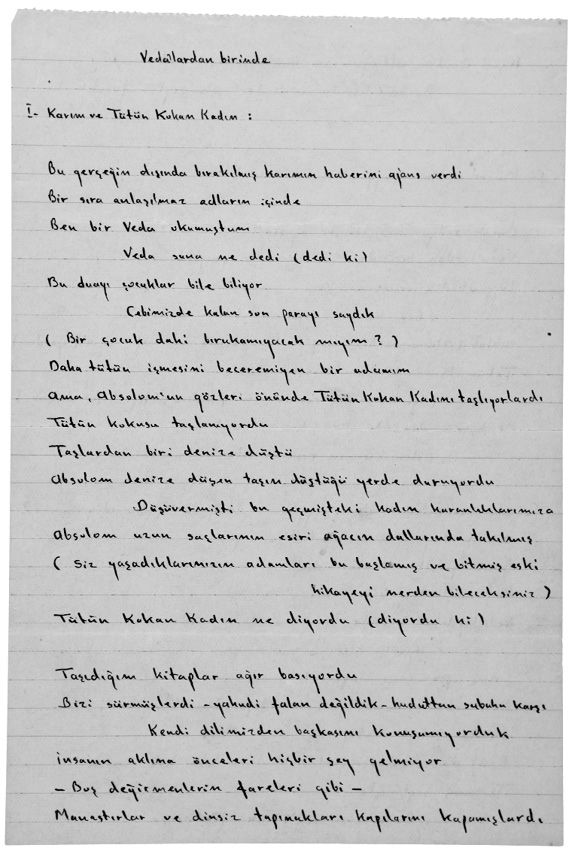 Veda'lardan birinde
I- Karım ve Tütün Kokan Kadın :
Bu gerçeğin dışında bırakılmış karımın haberini ajans verdi
Bir sıra anlaşılmaz adların içinde
Ben bir Veda okumuştum
Veda sana ne dedi (dedi ki)
Bu duayı çocuklar bile biliyor
Cebimizde kalan son parayı saydık
( Bir çocuk daki bırakamıyacak mıyım ? )
Daha tütün işmesini beceremiyen bir adamım
Ama, Absolom'un gözleri önünde Tütün Kokan Kadını taşlıyorlardı
Tütün kokusu taşlanıyordu
Taşlardan biri denize düştü
Absolom denize düşen taşın düştüğü yerde duruyordu
Düşüvermişti bu geçmişteki kadın karanlıklarımıza
Absolom uzun saçlarının esiri ağacın dallarında takılmış
( Siz yaşadıklarınızın adamları bu başlamış ve bitmiş eski
hikayeyi nerden bileceksiniz )
Tütün Kokan Kadın ne diyordu (diyordu ki)
Taşıdığım kitaplar ağır basıyordu
Bizi sürmüşlerdi - yahudi falan değildik - huduttan sabaha karşı
Kendi dilimizden başkasını konuşamıyorduk
insanın aklına önceleri hiçbir şey gelmiyor
- Boş değirmenlerin fareleri gibi -
Manastırlar ve dinsiz tapınakları kapılarını kapamışlardı